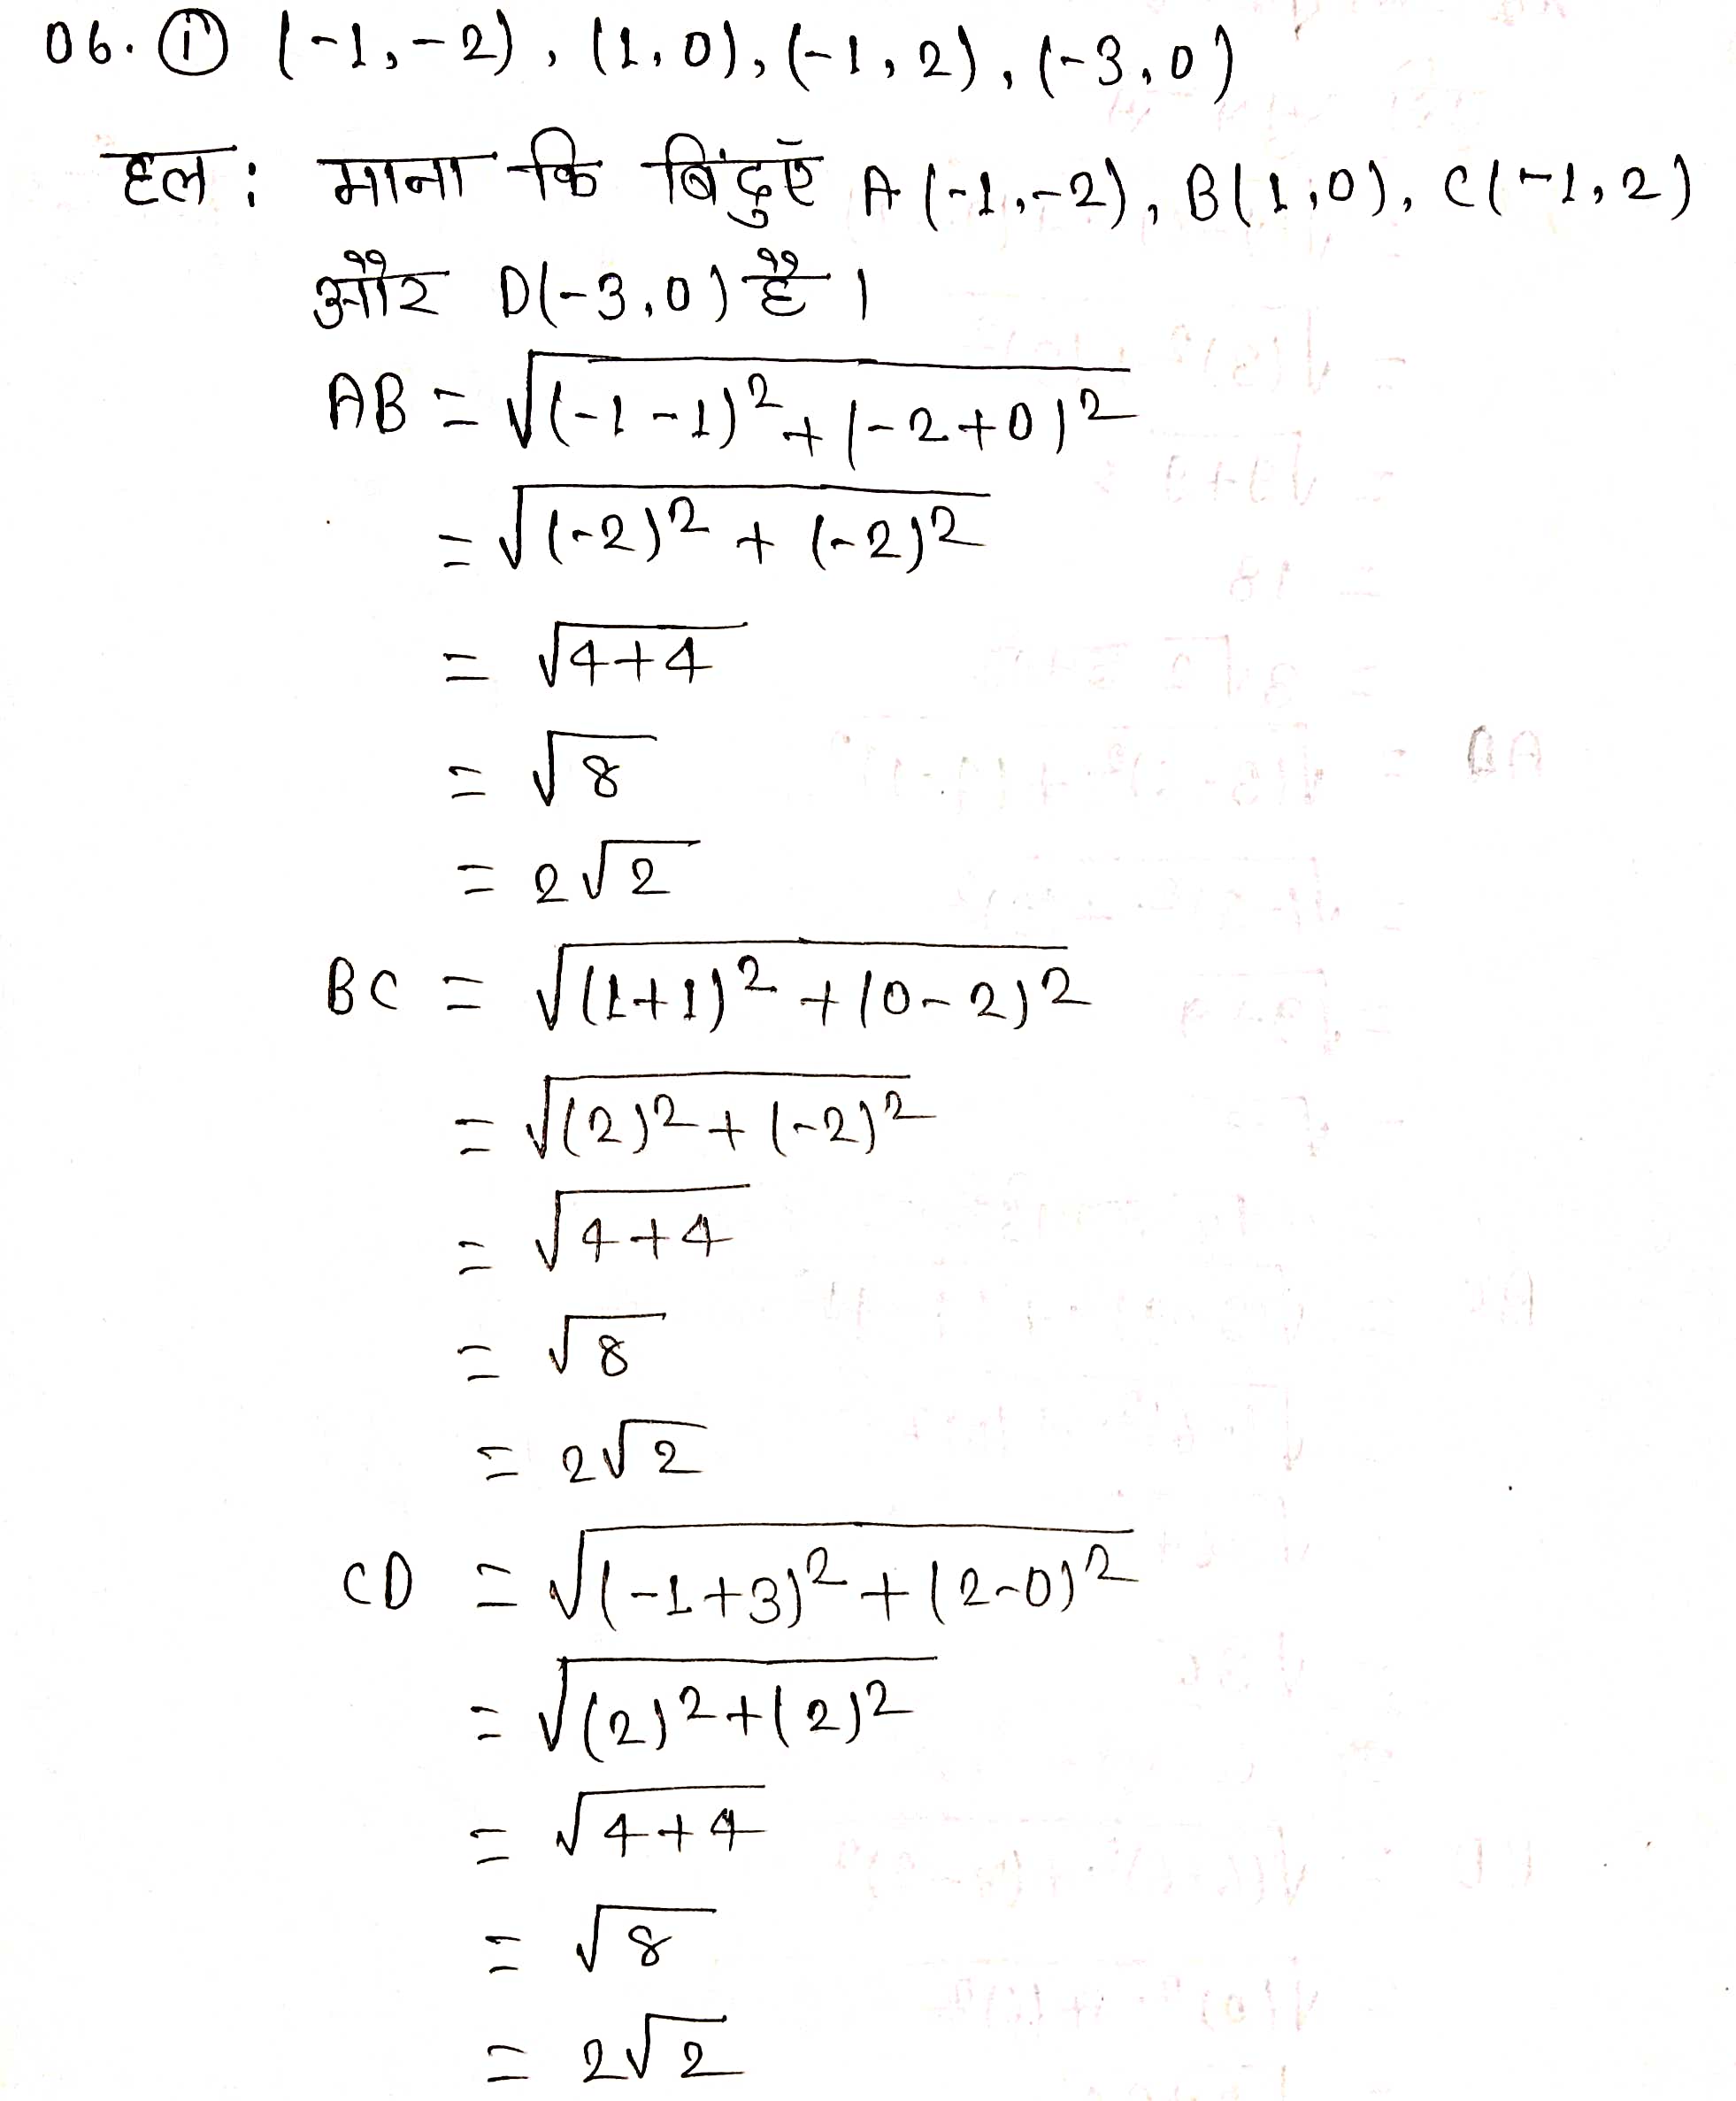 06. (i) (-1,-2), (1,0), (-1,2), (-3,0)
हल : माना कि बिंदुएँ A (-1,-2), B(1,0), C(-1,2)
और D(-3,0) है ।
AB = √((-1-1)² + (-2+0)²)
= √((-2)² + (-2)²)
= √(4+4)
= √8
= 2√2
BC = √((1+1)² + (0-2)²)
= √((2)² + (-2)²)
= √(4+4)
= √8
= 2√2
CD = √((-1+3)² + (2-0)²)
= √((2)² + (2)²)
= √(4+4)
= √8
= 2√2